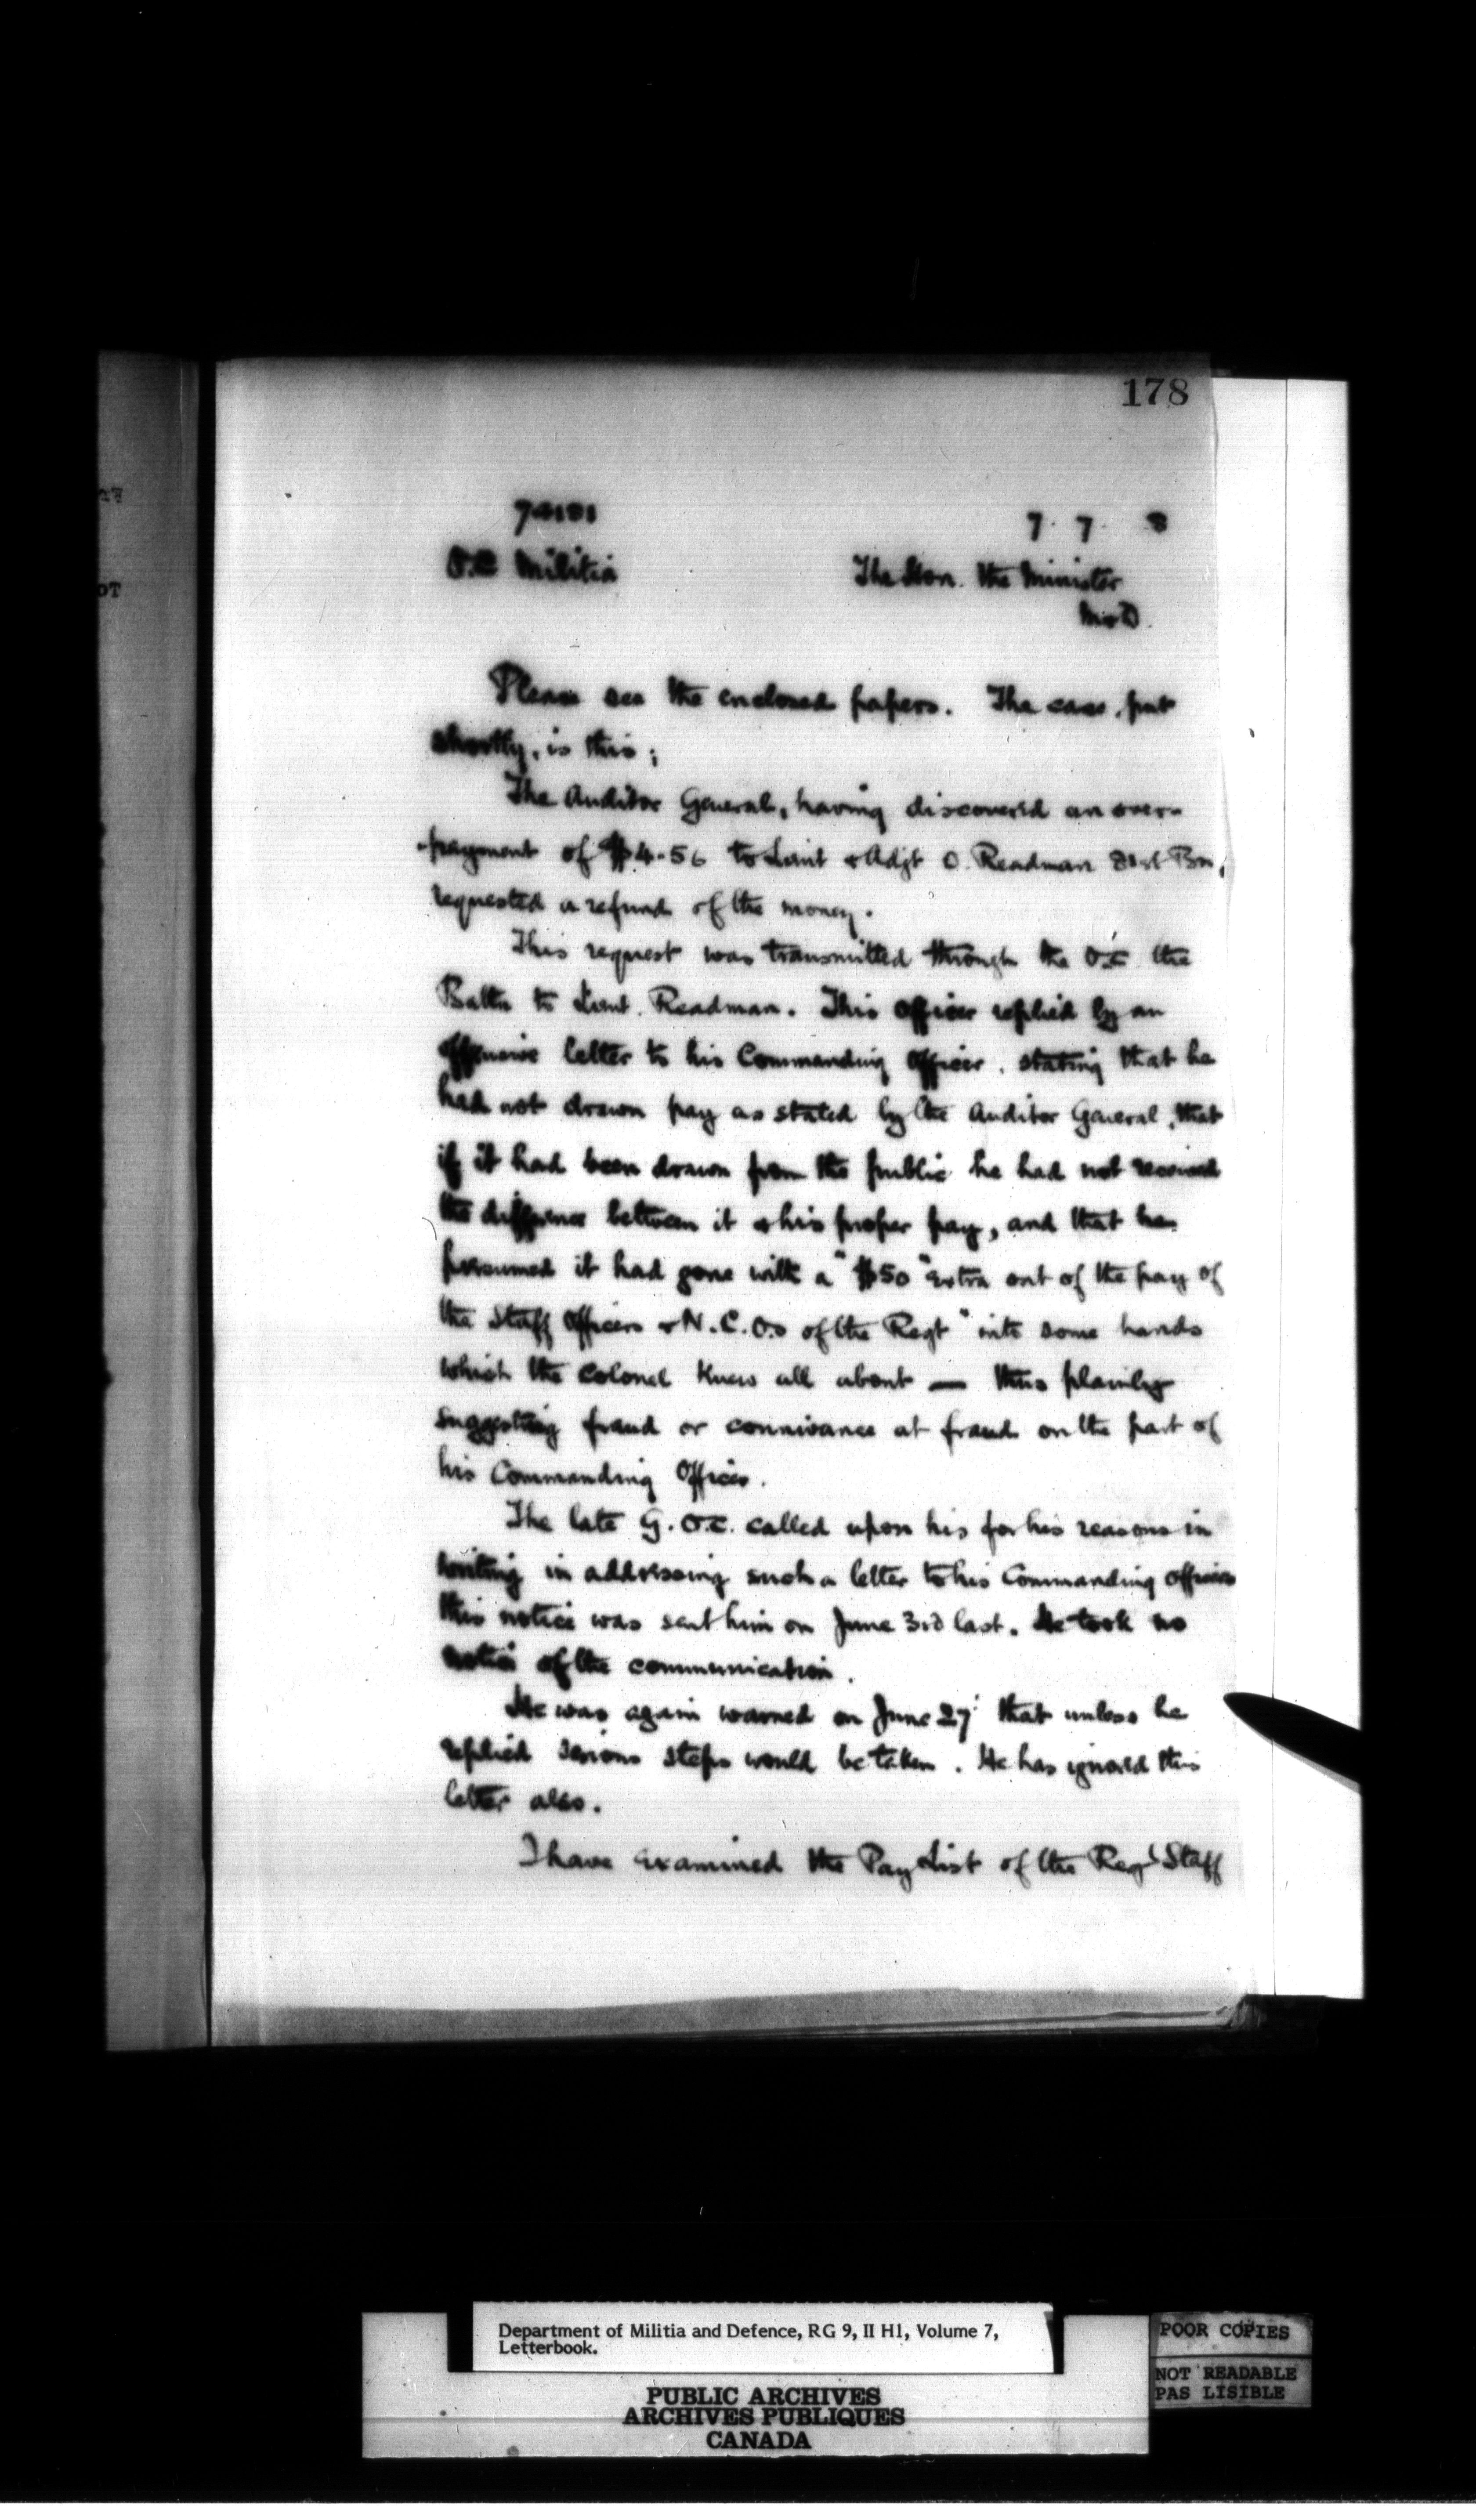 178
7 7 8
O.C Militia
The Hon. the Minister
M & D.
Please see the enclosed papers. The case, put
shortly, is this;
The Auditor General, having discovered an over-
-payment of $4.56 to Lieut & Adjt O. Readman 81st Bn,
requested a refund of the money.
This request was transmitted through the O.C. the
Battn to Lieut. Readman. This officer replied by an
offensive letter to his Commanding Officer, stating that he
had not drawn pay as stated by the Auditor General, that
if it had been drawn from the public he had not received
the difference between it & his proper pay, and that he
presumed it had gone with a "$50 "extra out of the pay of
the Staff Officers & N.C.Os of the Regt" into some hands
which the Colonel knew all about — thus plainly
suggesting fraud or connivance at fraud on the part of
his Commanding Officer.
The late G.O.C. called upon his for his reasons in
writing in addressing such a letter to his Commanding officer
this notice was sent him on June 3rd last. He took no
notice of the communication.
He was again warned on June 27 that unless he
replied serious steps would be taken. He has ignored this
letter also.
I have examined the Pay List of the Regl Staff
Department of Militia and Defence, RG 9, II H1, Volume 7,
Letterbook.
PUBLIC ARCHIVES
ARCHIVES PUBLIQUES
CANADA
POOR COPIES
NOT READABLE
PAS LISIBLE